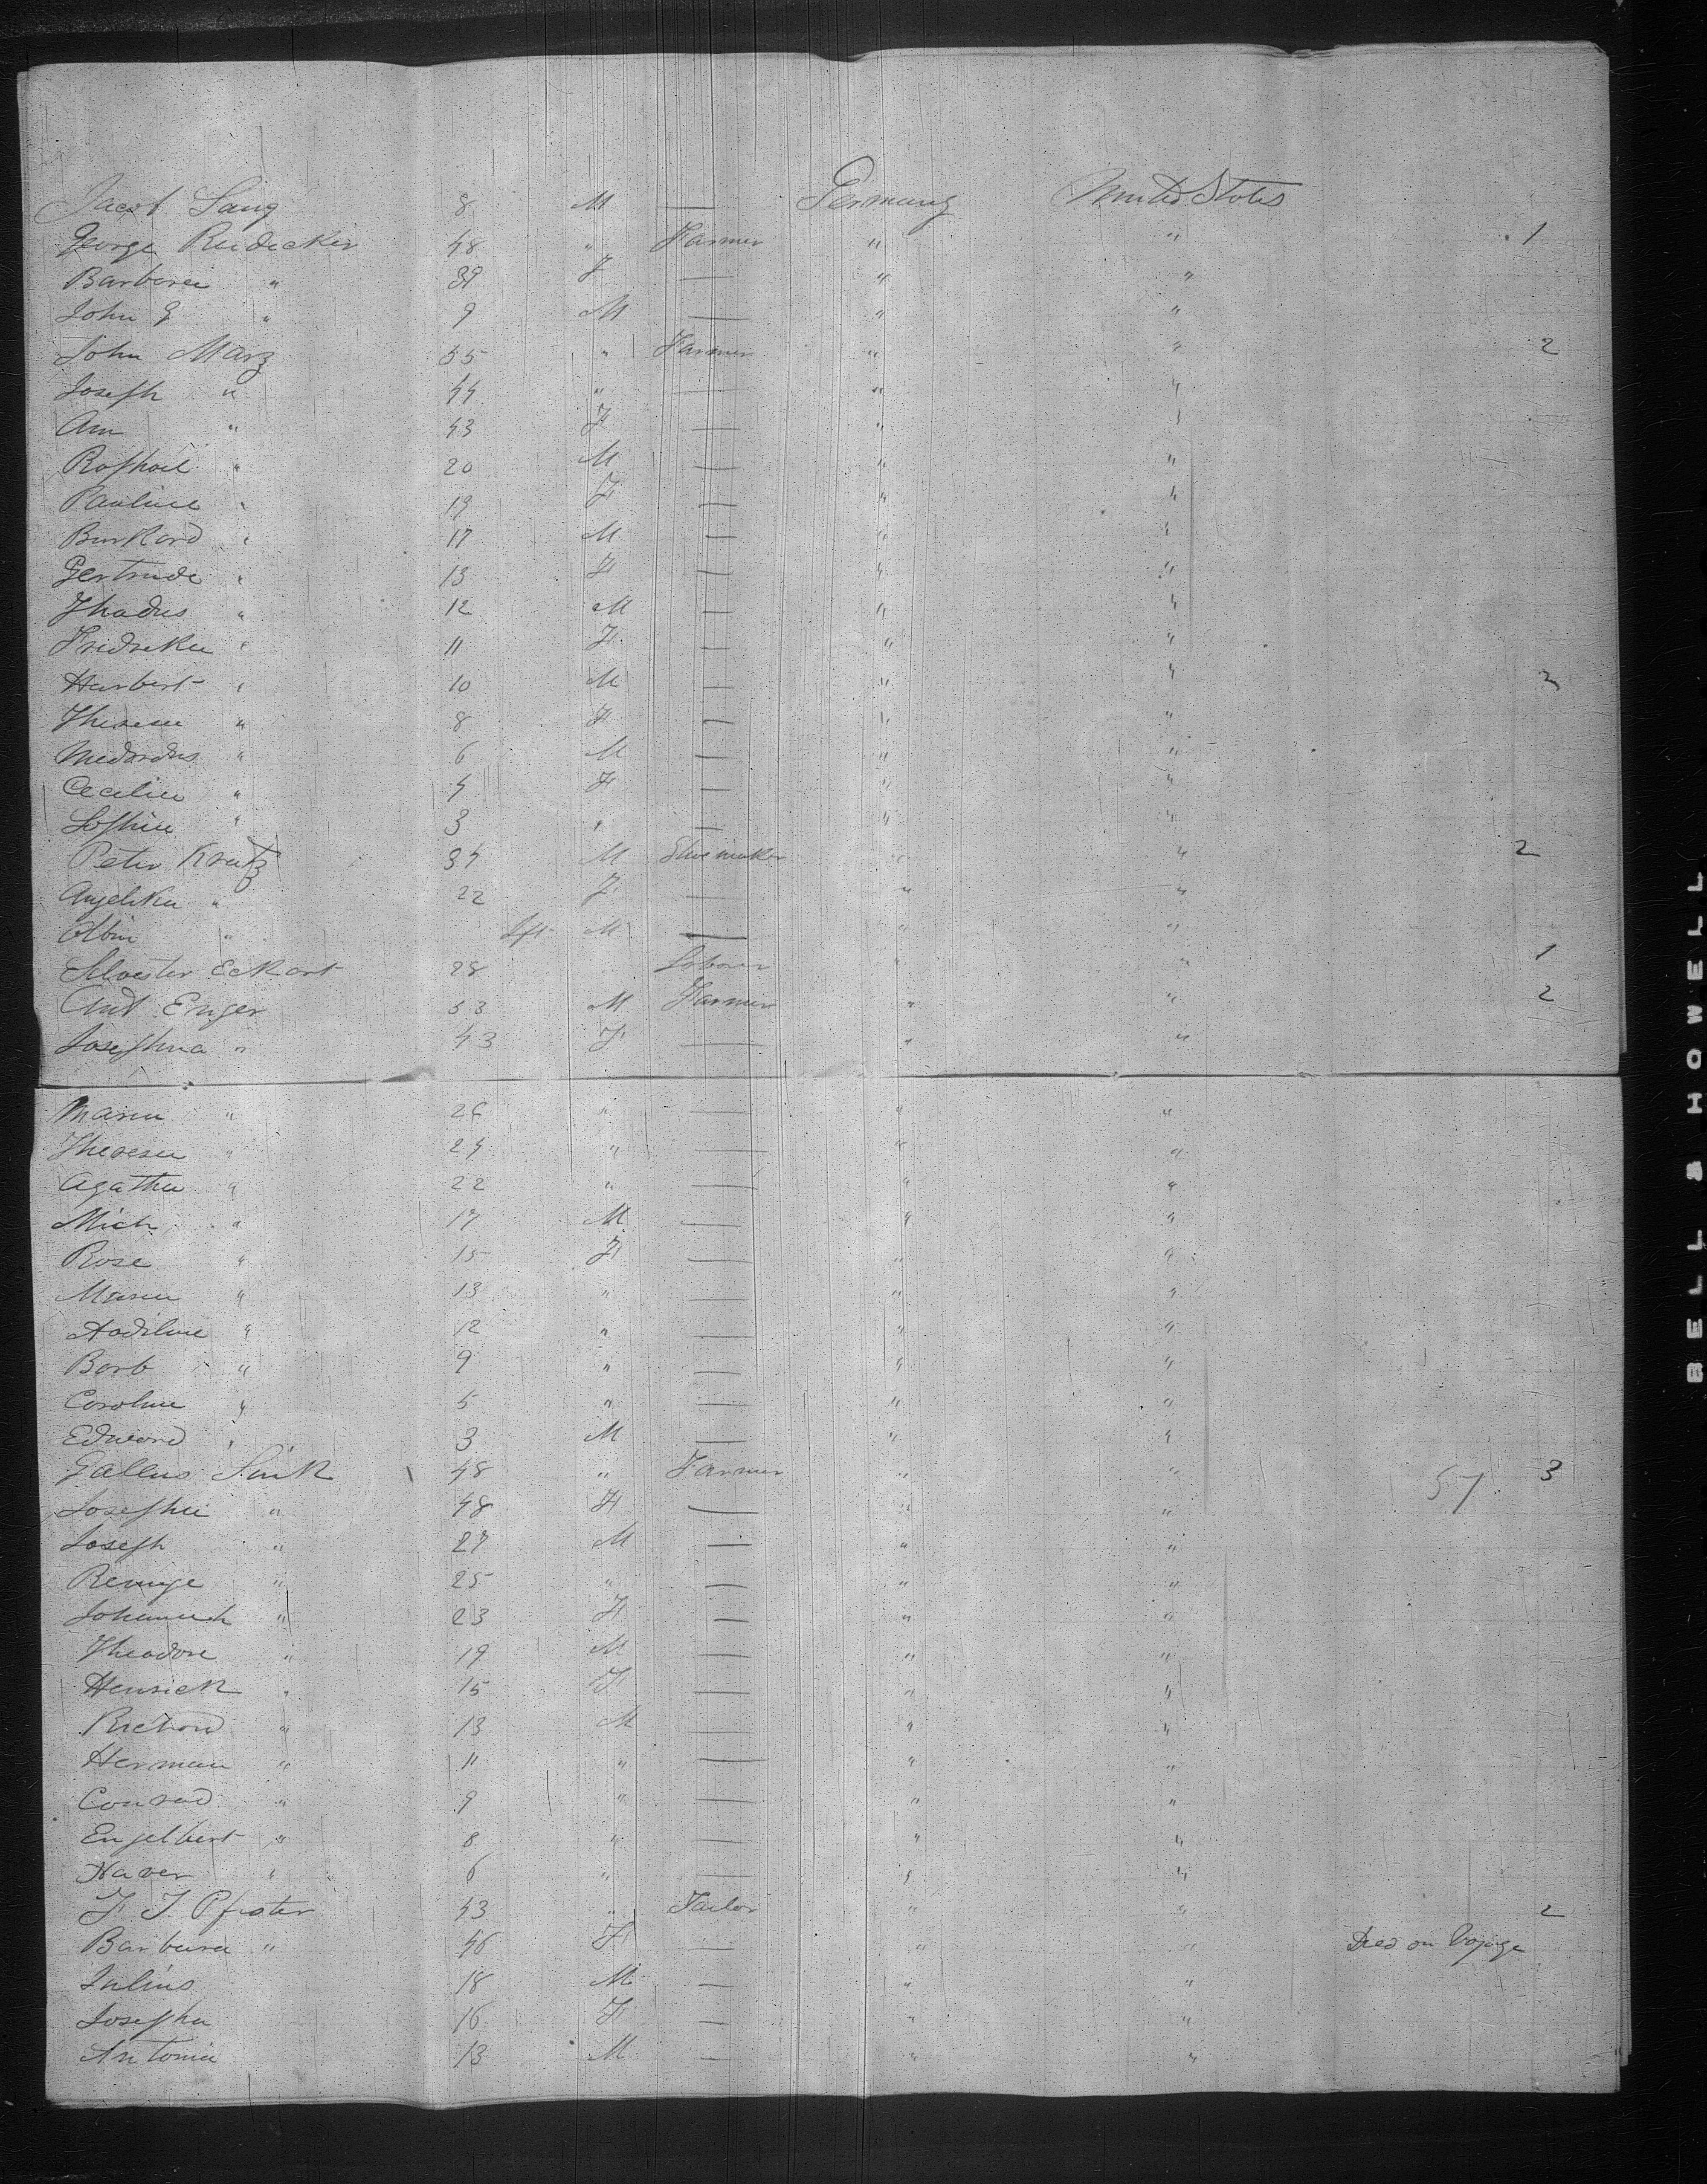 Jacob Lang 8 M — Germany United States
George Reidecker 48 " Farmer " " 1
Barbara " 39 F — " "
John G " 9 M — " "
John Marz 55 " Farmer " " 2
Joseph " 44 " — " "
Ann " 43 F — " "
Raphael " 20 M — " "
Pauline " 19 F — " "
Burkard " 17 M — " "
Gertrude " 13 F — " "
Thadus " 12 M — " "
Fridreka " 11 F — " "
Harbert " 10 M — " " 2
Theresa " 8 F — " "
Medardus " 6 M — " "
Cecilia " 4 F — " "
Sophia " 3 " — " "
Peter Kratz 34 M Shoemaker " " 2
Angelika " 22 F — " "
Albin " Ift M — " "
Silvester Eckart 28 Laborer " " 1
And Enger 53 M Farmer " " 2
Josephina " 43 F — " "
Maria " 26 " — " "
Theresa " 24 " — " "
Agatha " 22 " — " "
Mich " 17 M — " "
Rose " 15 F — " "
Maria " 13 " — " "
Aodiline " 12 " — " "
Barb " 9 " — " "
Caroline " 5 " — " "
Edward " 3 M — " "
Gallus Sink 48 " Farmer " " 57 3
Josepha " 48 F — " "
Joseph " 27 M — " "
Remige " 25 " — " "
Johannah " 23 F — " "
Theodore " 19 M — " "
Henrick " 15 F — " "
Richard " 13 M — " "
Herman " 11 " — " "
Conrad " 9 " — " "
Engelbert " 8 " — " "
Xaver " 6 " — " "
F. J. Pfister 43 " Tailor " " 2
Barbara " 46 F — " " Died on Voyage
Julius 18 M — " "
Josepha 16 F — " "
Antonia 13 M — " "
BELL & HOWELL